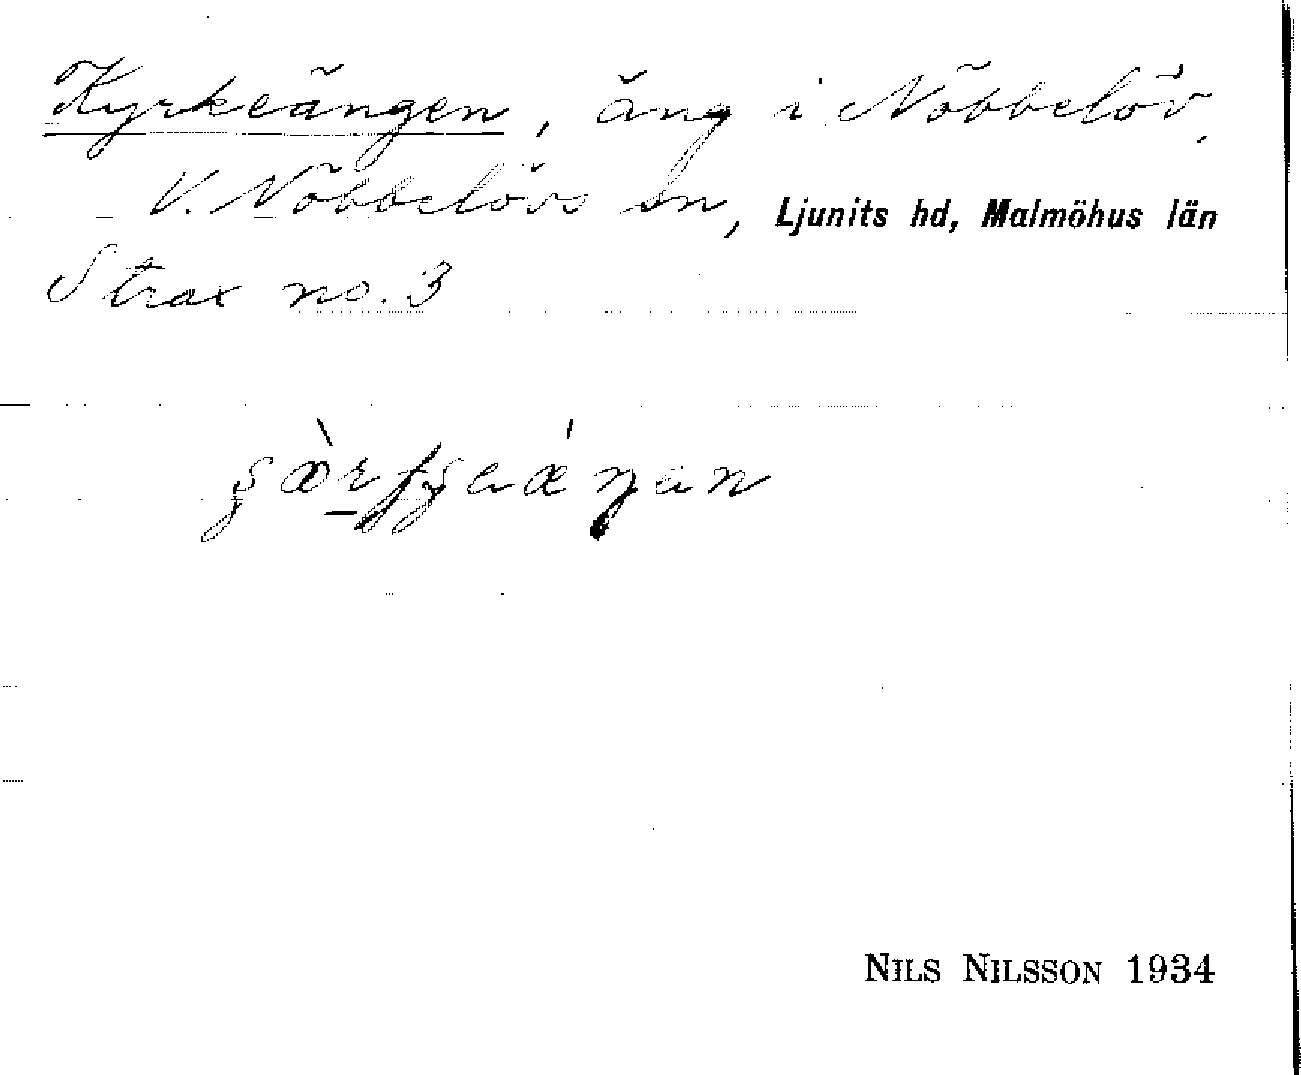 Kyrkeängen, äng i Nöbbelöv,
V. Nöbbelövs sn, Ljunits hd, Malmöhus län
Strax no. 3
NILS NILSSON 1934